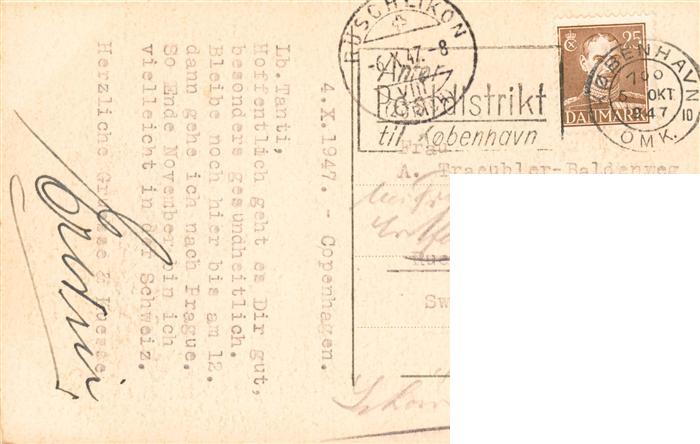 4.X.1947. - Copenhagen.
Lb.Tanti,
Hoffentlich geht es Dir gut,
besonders gesundheitlich.
Bleibe noch hier bis am 12.
dann gehe ich nach Prague.
So Ende November bin ich
vielleicht in der Schweiz.
Herzliche Gruesse & Kuesse
RÜSCHLIKON
-6.X.47.-8
Anfør
Postdistrikt
til København
25
DANMARK
KØBENHAVN
OKT
1947
10
OMK.
Frau
A. Traeubler-Baldenweg
Sw